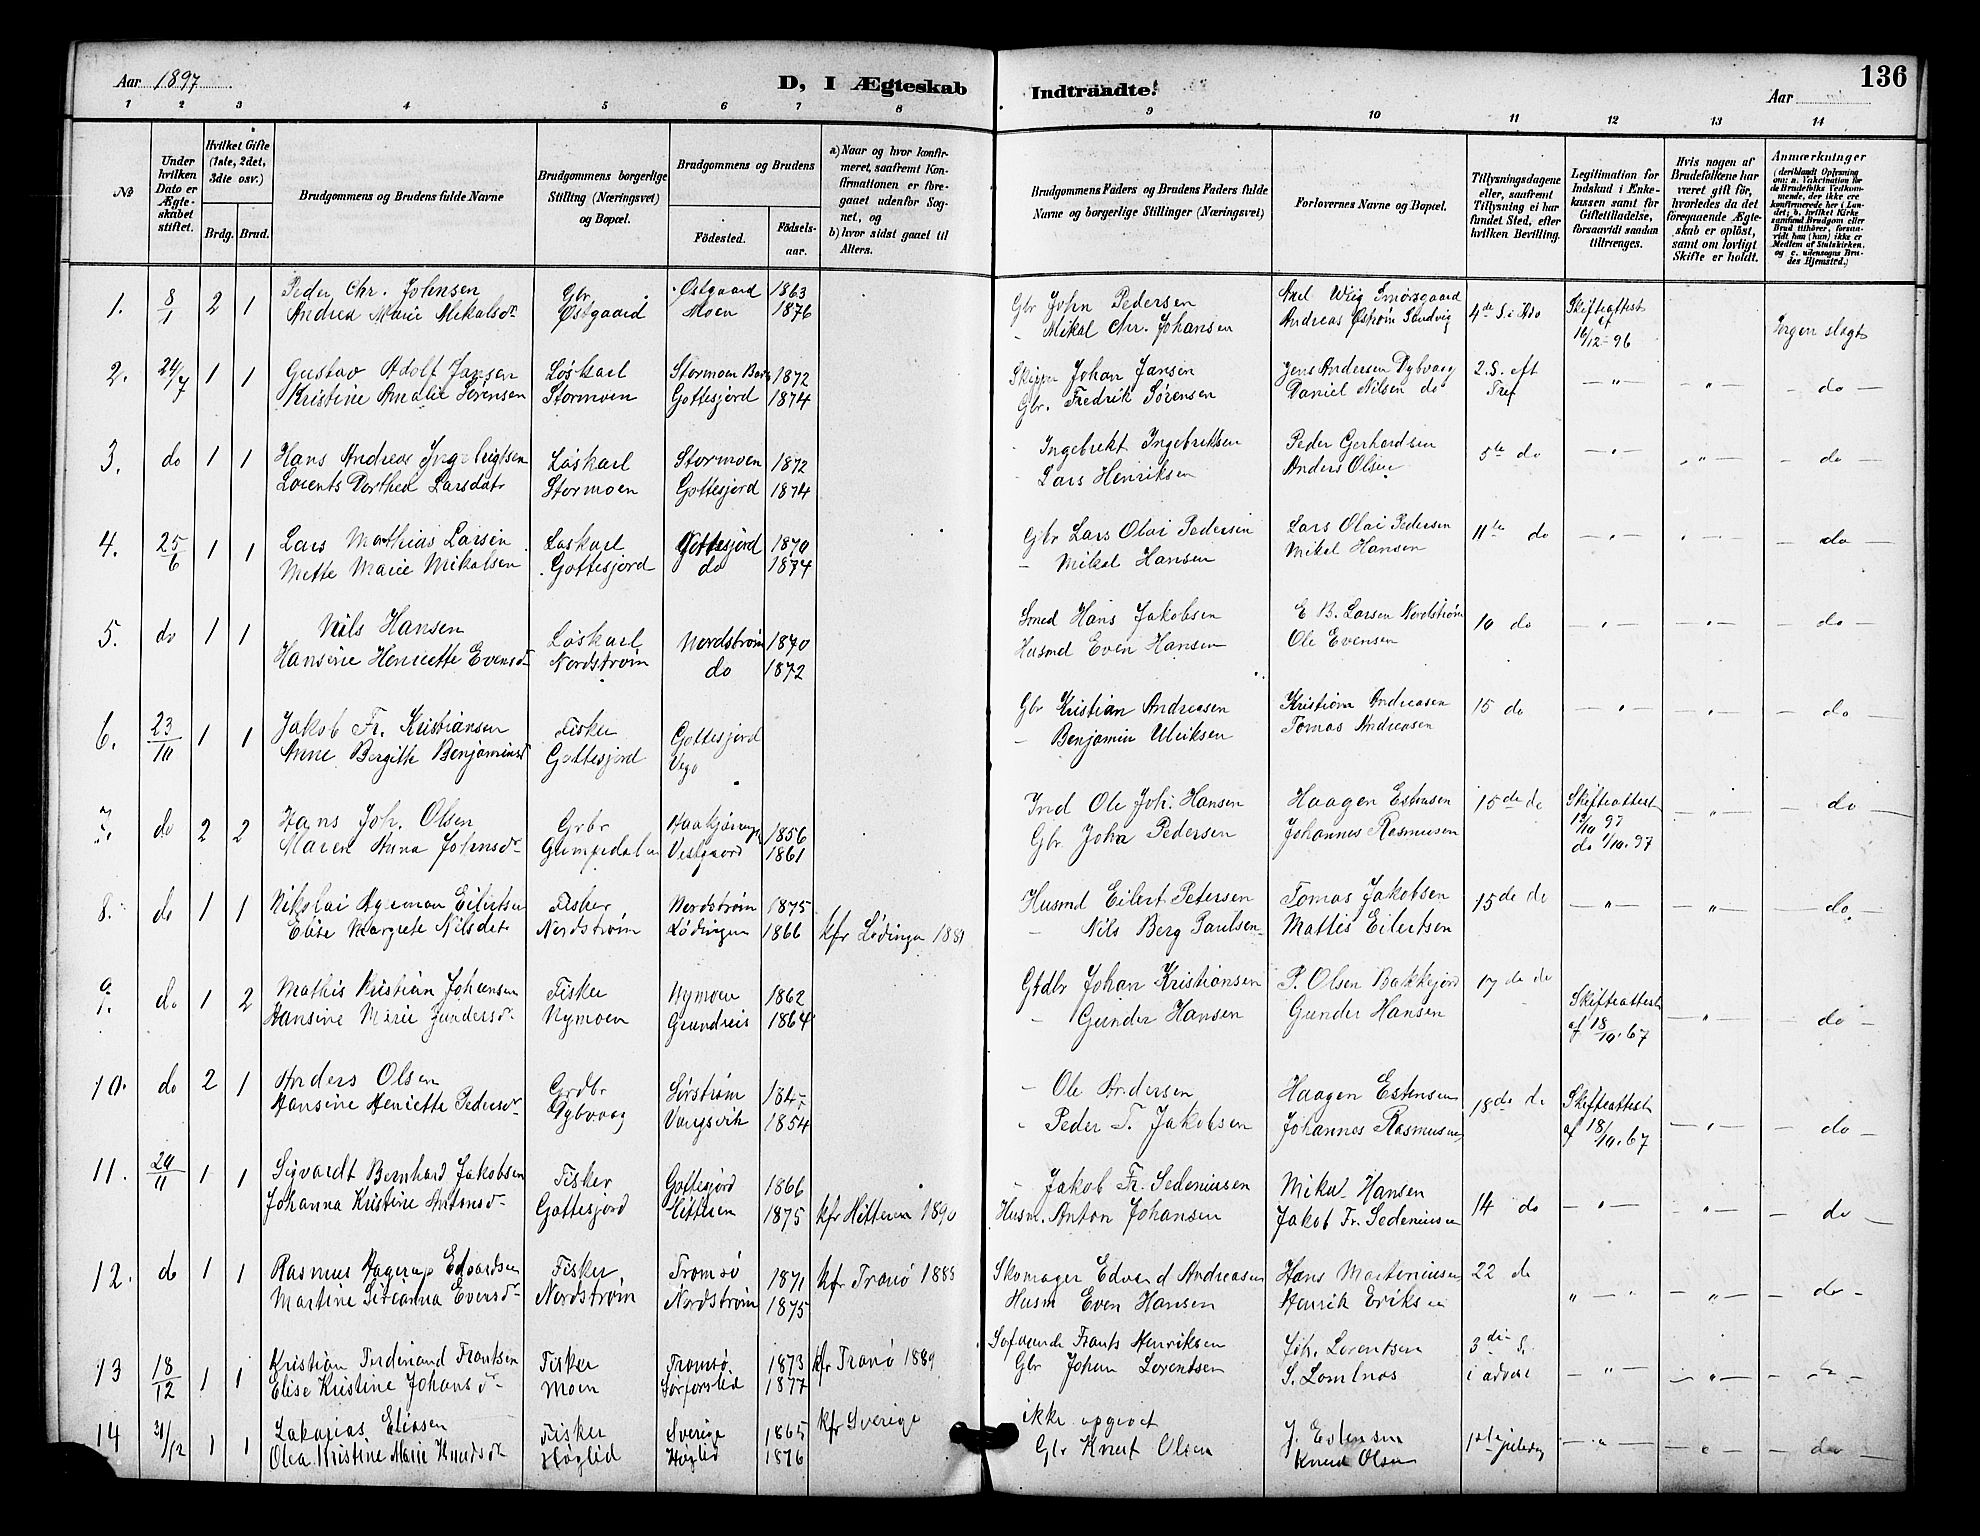 Aar 1897
D, I Ægteskab Indtraadte.
Aar
136
1 2 3 4 5 6 7 8 9 10 11 12 13 14
No
Under hvilken Dato er Ægteskabet stiftet.
Hvilket Gifte (1ste, 2det, 3die osv.)
Brdg. Brud.
Brudgommens og Brudens fulde Navne
Brudgommens borgerlige Stilling (Næringsvei) og Bopæl.
Brudgommens og Brudens
Fødested.
Fødselsaar.
a) Naar og hvor konfirmeret, saafremt Konfirmationen er foregaaet udenfor Sognet, og
b) hvor sidst gaaet til Alters.
Brudgommens Faders og Brudens Faders fulde Navne og borgerlige Stillinger (Næringsvei)
Forlovernes Navne og Bopæl.
Tillysningsdagene eller, saafremt Tillysning ei har fundet Sted, efter hvilken Bevilling.
Legitimation for Indskud i Enkekassen samt for Giftetilladelse, forsaavidt saadan tiltrænges.
Hvis nogen af Brudefolkene har været gift før, hvorledes da det foregaaende Ægteskab er opløst, samt om lovligt Skifte er holdt.
Anmærkninger (deriblandt Oplysning om: a. Vakcination for de Brudefolks Vedkommende, der ikke ere konfirmerede her i Landet; b. hvilket Kirkesamfund Brudgom eller Brud tilhører, forsaavidt han (hun) ikke er Medlem af Statskirken, og c. udensogns Brudes Hjemsted.)
1. 8/1 2 1 Peder Chr. Johnsen Gbr. Østgaard 1863 Gbr John Pedersen Axel Wiig Smørsgaard 4de S. i Ado Skifteattest af 16/12-96
Andrea Marie Mikalsdr Østgaard Moen 1876 - Mikal Chr. Johansen Andreas Østrøm Sandvig Ingen slegt
2. 24/7 1 1 Gustav Adolf Jansen Løskarl Stormoen Berg 1872 Skipper Johan Jansen Jens Andersen Dybvaag 2. S. eft Tref - " - - " - - do -
Kristine Amalie Sørensen Stormoen Gottesjord 1874 Gbr. Fredrik Sørensen Daniel Nilsen do
3. do 1 1 Hans Andreas Ingebrigtsen Løskarl Stormoen 1872 - Ingebrikt Ingebriktsen Peder Gerhardsen 5te do - " - - " - - do -
Lorents Dorthea Larsdatr Stormoen Gottesjord 1874 - Lars Henriksen Anders Olsen
4. 25/6 1 1 Lars Mathias Larsen Løskarl Gottesjord 1870 Gbr Lars Olai Pedersen Lars Olai Pedersen 11te do - " - - " - - do -
Mette Marie Mikalsen Gottesjord do 1874 - Mikal Hansen Mikal Hansen
5. do 1 1 Nils Hansen Løskarl Nordstrøm 1870 Smed Hans Jakobsen E B. Larsen Nordstrøm 10 do - " - - " - - do -
Hansine Henriette Evensdr Nordstrøm do 1872 Husmd Even Hansen Ole Evensen
6. 23/10 1 1 Jakob Fr. Kristiansen Fisker Gottesjord Gbr Kristian Andreasen Kristian Andreasen 15 do - " - - " - - do -
Anne Bergitte Benjaminsd Gottesjord Vega - Benjamin Ulriksen Tomas Andreasen
7. do 2 2 Hans Joh. Olsen Grbr 1856 Ind Ole Joh. Hansen Haagen Estensen 15 de do Skifteattest 19/10 97 - " - - do -
Maren Anna Johnsdr Gumpedalen Vestgaard 1861 Gbr. John Pedersen Johannes Rasmusen do 1/10.97
8. do 1 1 Nikolai Hyeman Eilertsen Fisker Nordstrøm 1875 Husmd Eilert Petersen Tomas Jakobsen 15 de do - " - - " - - do.
Elise Margrete Nilsdatr Nordstrøm Lødingen 1866 kfr Lødingen 1881 - Nils Berg Paulsen Mattis Eilertsen
9. do 1 2 Mathis Kristian Johansen Fisker Nymoen 1862 Grdbr Johan Kristiansen P. Olsen Bakkejord 17 de do Skifteattest af 18/10.67 - " - - do -
Hansine Marie Gundersdr Nymoen Grundreis 1864 - Gunder Hansen Gunder Hansen
10. do 2 1 Anders Olsen Grdbr Sørstrøm - Ole Andersen Haagen Estensen 18 de do Skifteattest af 18/10.67 - " - - do -
Hansine Henriette Pedersdr Dybvaag Vangsvik 1854 - Peder T. Jakobsen Johannes Rasmusen
11. 20/11 1 1 Sigvardt Bernhard Jakobsen Fisker Gottesjord 1866 - Jakob Fr. Sedeniusen Mikal Hansen 14 do - " - - " - - do -
Johanna Kristine Antonsdr Gottesjord Hitteren 1875 kfr Hitteren 1890 Husm. Anton Johansen Jakob Fr. Sedeniusen
12. do 1 1 Rasmus Hagerup Edvardsen Fisker Tromsø 1871 kfr Tranø 1885 Skomager Edvard Andreasen Hans Marteniusen 22 do " - " - " - - do -
Martine Sirianna Evensdr Nordstrøm Nordstrøm 1875 Husm Even Hansen Henrik Eriksen
13 18/12 1 1 Kristian Ferdinand Frantsen Fisker Tromsø. 1873 kfr Tranø 1889 Frants Henriksen Joh. Lorentsen 3die S. i advent - " - - " -
Elise Kristine Johansdr Moen Sørforslid 1877 Gbr Johan Lorentsen
14 31/12 1 1 Zakarias Eliasen Fisker Sverige 1865 kfr Sverige ikke opgivet J. Estensen 1ste juledag - " - - " - - do -
Olea Kristine Marie Knudsdr Høglid Høglid 1876 Gbr Knut Olsen Knud Olsen